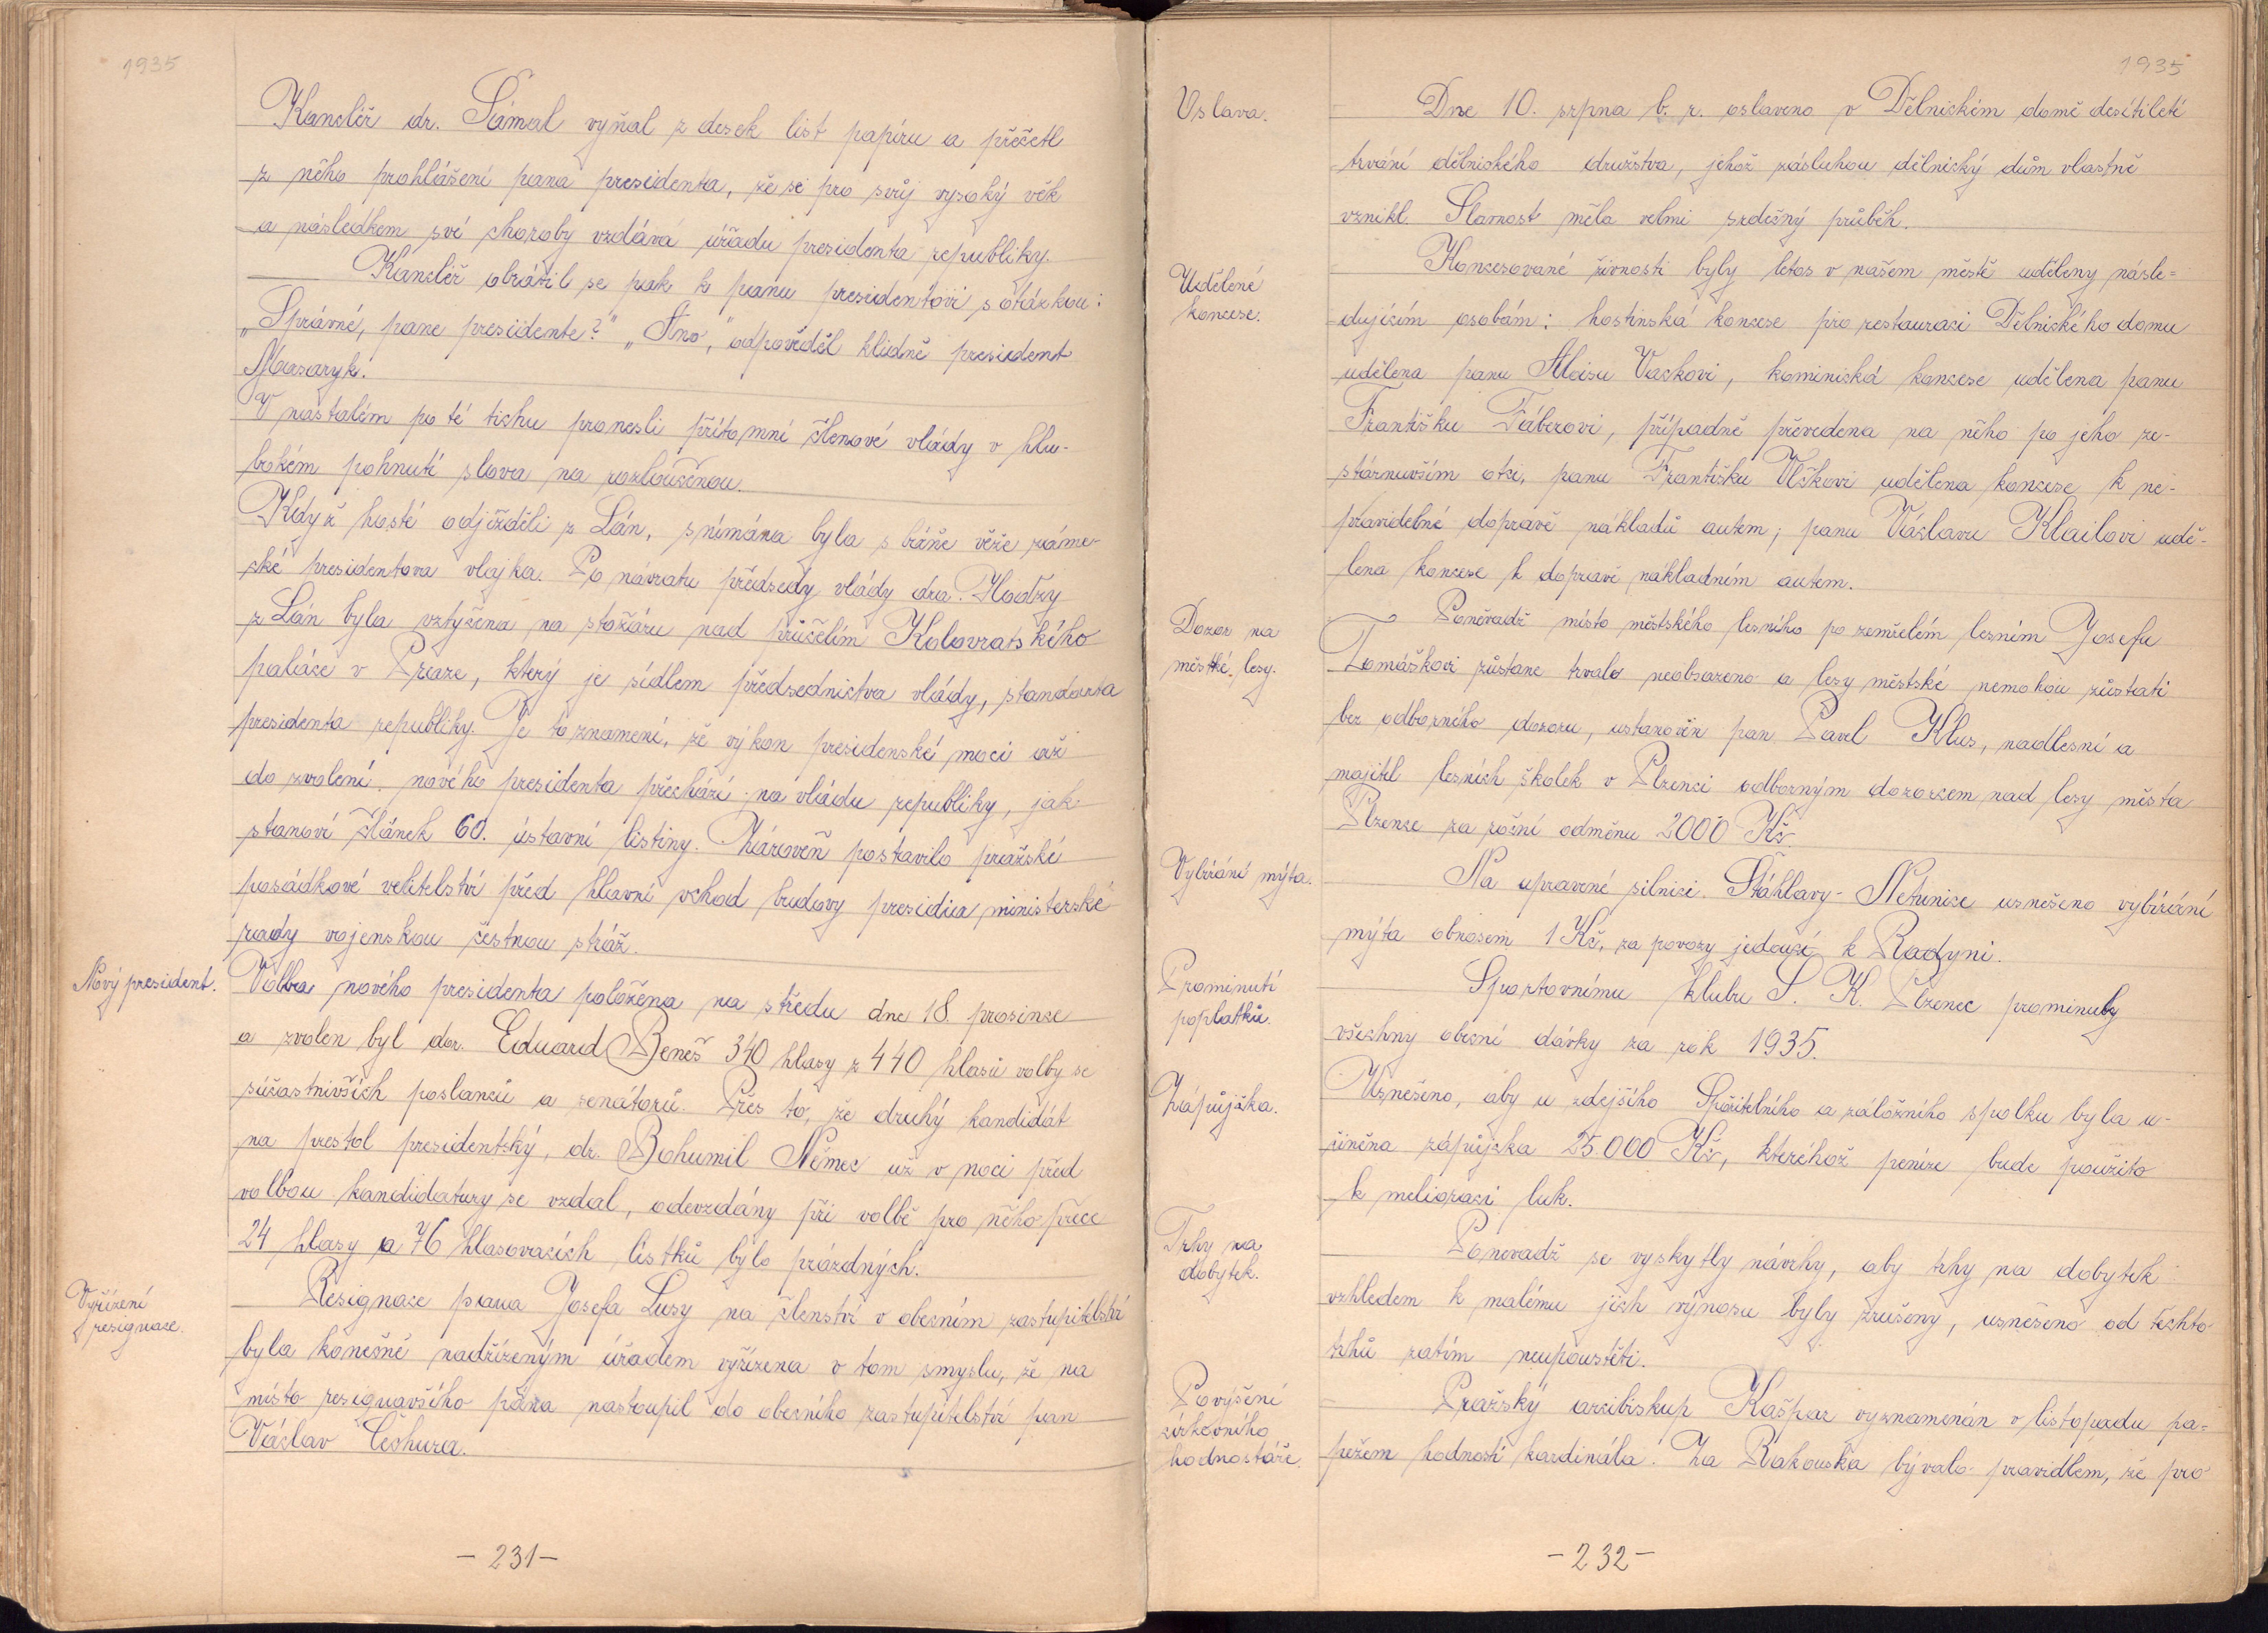 1935
Kancléř dr. Šámal vyňal z desek list papíru a přečetl
z něho prohlášení pana presidenta, že se pro svůj vysoký věk
a následkem své choroby vzdává úřadu presidenta republiky.
Kancléř obrátil se pak k panu presidentovi s otázkou:
„Správné, pane presidente?" „Ano," odpověděl klidně president
Masaryk.
V nastalém po té tichu pronesli přítomní členové vlády v hlu-
bokém pohnutí slova na rozloučenou.
Když hosté odjížděli z Lán, snímána byla s báně věže záme-
cké presidentova vlajka. Po návratu předsedy vlády dra. Hodžy
z Lán byla vztyčena na stožáru nad průčelím Kolovratského
paláce v Praze, který je sídlem předsednictva vlády, standarta
presidenta republiky. Je to znamení, že výkon presidenské moci až
do zvolení nového presidenta přechází na vládu republiky, jak
stanoví článek 60. ústavní listiny. Zároveň postavilo pražské
posádkové velitelství před hlavní vchod budovy presidia ministerské
rady vojenskou čestnou stráž.
Nový president.
Volba nového presidenta položena na středu dne 18. prosince
a zvolen byl dr. Eduard Beneš 340 hlasy z 440 hlasů volby se
súčastnivších poslanců a senátorů. Přes to, že druhý kandidát
na prestol presidentský, dr. Bohumil Němec už v noci před
volbou kandidatury se vzdal, odevzdány při volbě pro něho přece
24 hlasy a 76 hlasovacích lístků bylo prázdných.
Vyřízení
resignace.
Resignace pana Josefa Lusy na členství v obecním zastupitelství
byla konečně nadřízeným úřadem vyřízena v tom smyslu, že na
místo resignavšího pána nastoupil do obecního zastupitelství pan
Václav Čechura.
- 231 -
1935
Oslava.
Dne 10. srpna b. r. oslaveno v Dělnickém domě desítiletí
trvání dělnického družstva, jehož zásluhou dělnický dům vlastně
vznikl. Slavnost měla velmi srdečný průběh.
Udělené
koncese.
Koncesované živnosti byly letos v našem městě uděleny násle=
dujícím osobám: hostinská koncese pro restauraci Dělnického domu
udělena panu Aloisu Vackovi, kominická koncese udělena panu
Františku Fáberovi, případně převedena na něho po jeho ze-
stárnuvším otci, panu Františku Vlčkovi udělena koncese k ne-
pravidelné dopravě nákladů autem; panu Václavu Klailovi udě-
lena koncese k dopravě nákladním autem.
Dozor na
městké lesy.
Poněvadž místo městského lesního po zemřelém lesním Josefu
Tomáškovi zůstane trvale neobsazeno a lesy městské nemohou zůstati
bez odborného dozoru, ustanověn pan Pavel Klus, nadlesní a
majitel lesních školek v Plzenci odborným dozorcem nad lesy města
Plzence za roční odměnu 2000 Kč.
Vybírání mýta.
Na upravené silnici Štáhlavy - Netunice usnešeno vybírání
mýta obnosem 1 Kč, za povozy jedoucí k Radyni.
Prominutí
poplatků.
Sportovnímu klubu S. K. Plzenec prominuty
všechny obecní dávky za rok 1935.
Zápůjčka.
Usnešeno, aby u zdejšího Spořitelního a záložního spolku byla u-
činěna zápůjčka 25.000 Kč, kteréhož peníze bude použito
k melioraci luk.
Trhy na
dobytek.
Ponevadž se vyskytly návrhy, aby trhy na dobytek
vzhledem k malému jich výnosu byly zrušeny, usnešeno od těchto
trhů zatím neupouštěti.
Povýšení
církevního
hodnostáře.
Pražský arcibiskup Kašpar vyznamenán v listopadu pa=
pežem hodností kardinála. Za Rakouska bývalo pravidlem, že pro
- 232 -